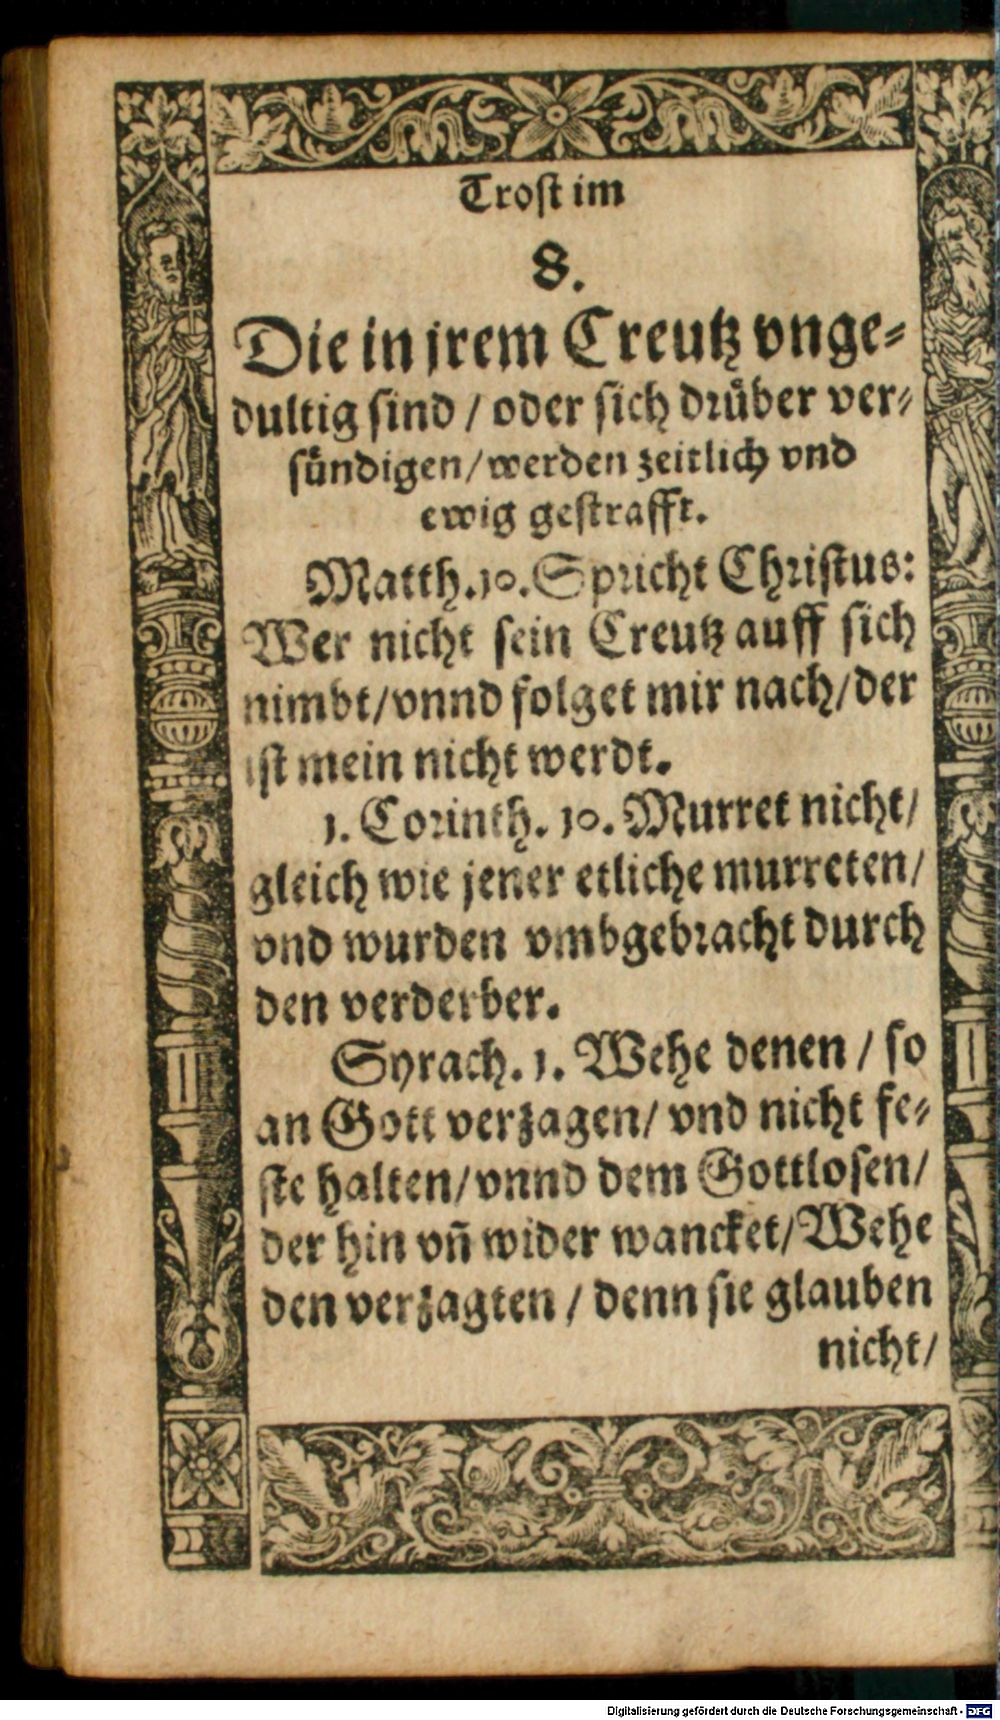 Trost im
8.
Die in jrem Creutz vnge⸗
dultig sind / oder sich drüber ver⸗
sündigen / werden zeitlich vnd
ewig gestrafft.
Matth. 10. Spricht Christus:
Wer nicht sein Creutz auff sich
nimbt / vnnd folget mir nach / der
ist mein nicht werdt.
1. Corinth. 10. Murret nicht /
gleich wie jener etliche murreten /
vnd wurden vmbgebracht durch
den verderber.
Syrach. 1. Wehe denen / so
an Gott verzagen / vnd nicht fe⸗
ste halten / vnnd dem Gottlosen /
der hin vñ wider wancket / Wehe
den verzagten / denn sie glauben
nicht /
Digitalisierung gefördert durch die Deutsche Forschungsgemeinschaft - DFG